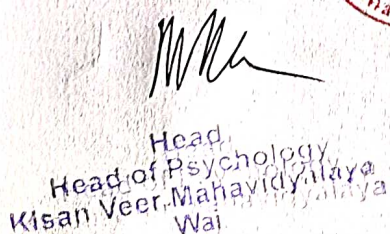 Head
Head of Psychology
Kisan Veer Mahavidyalaya
Wai